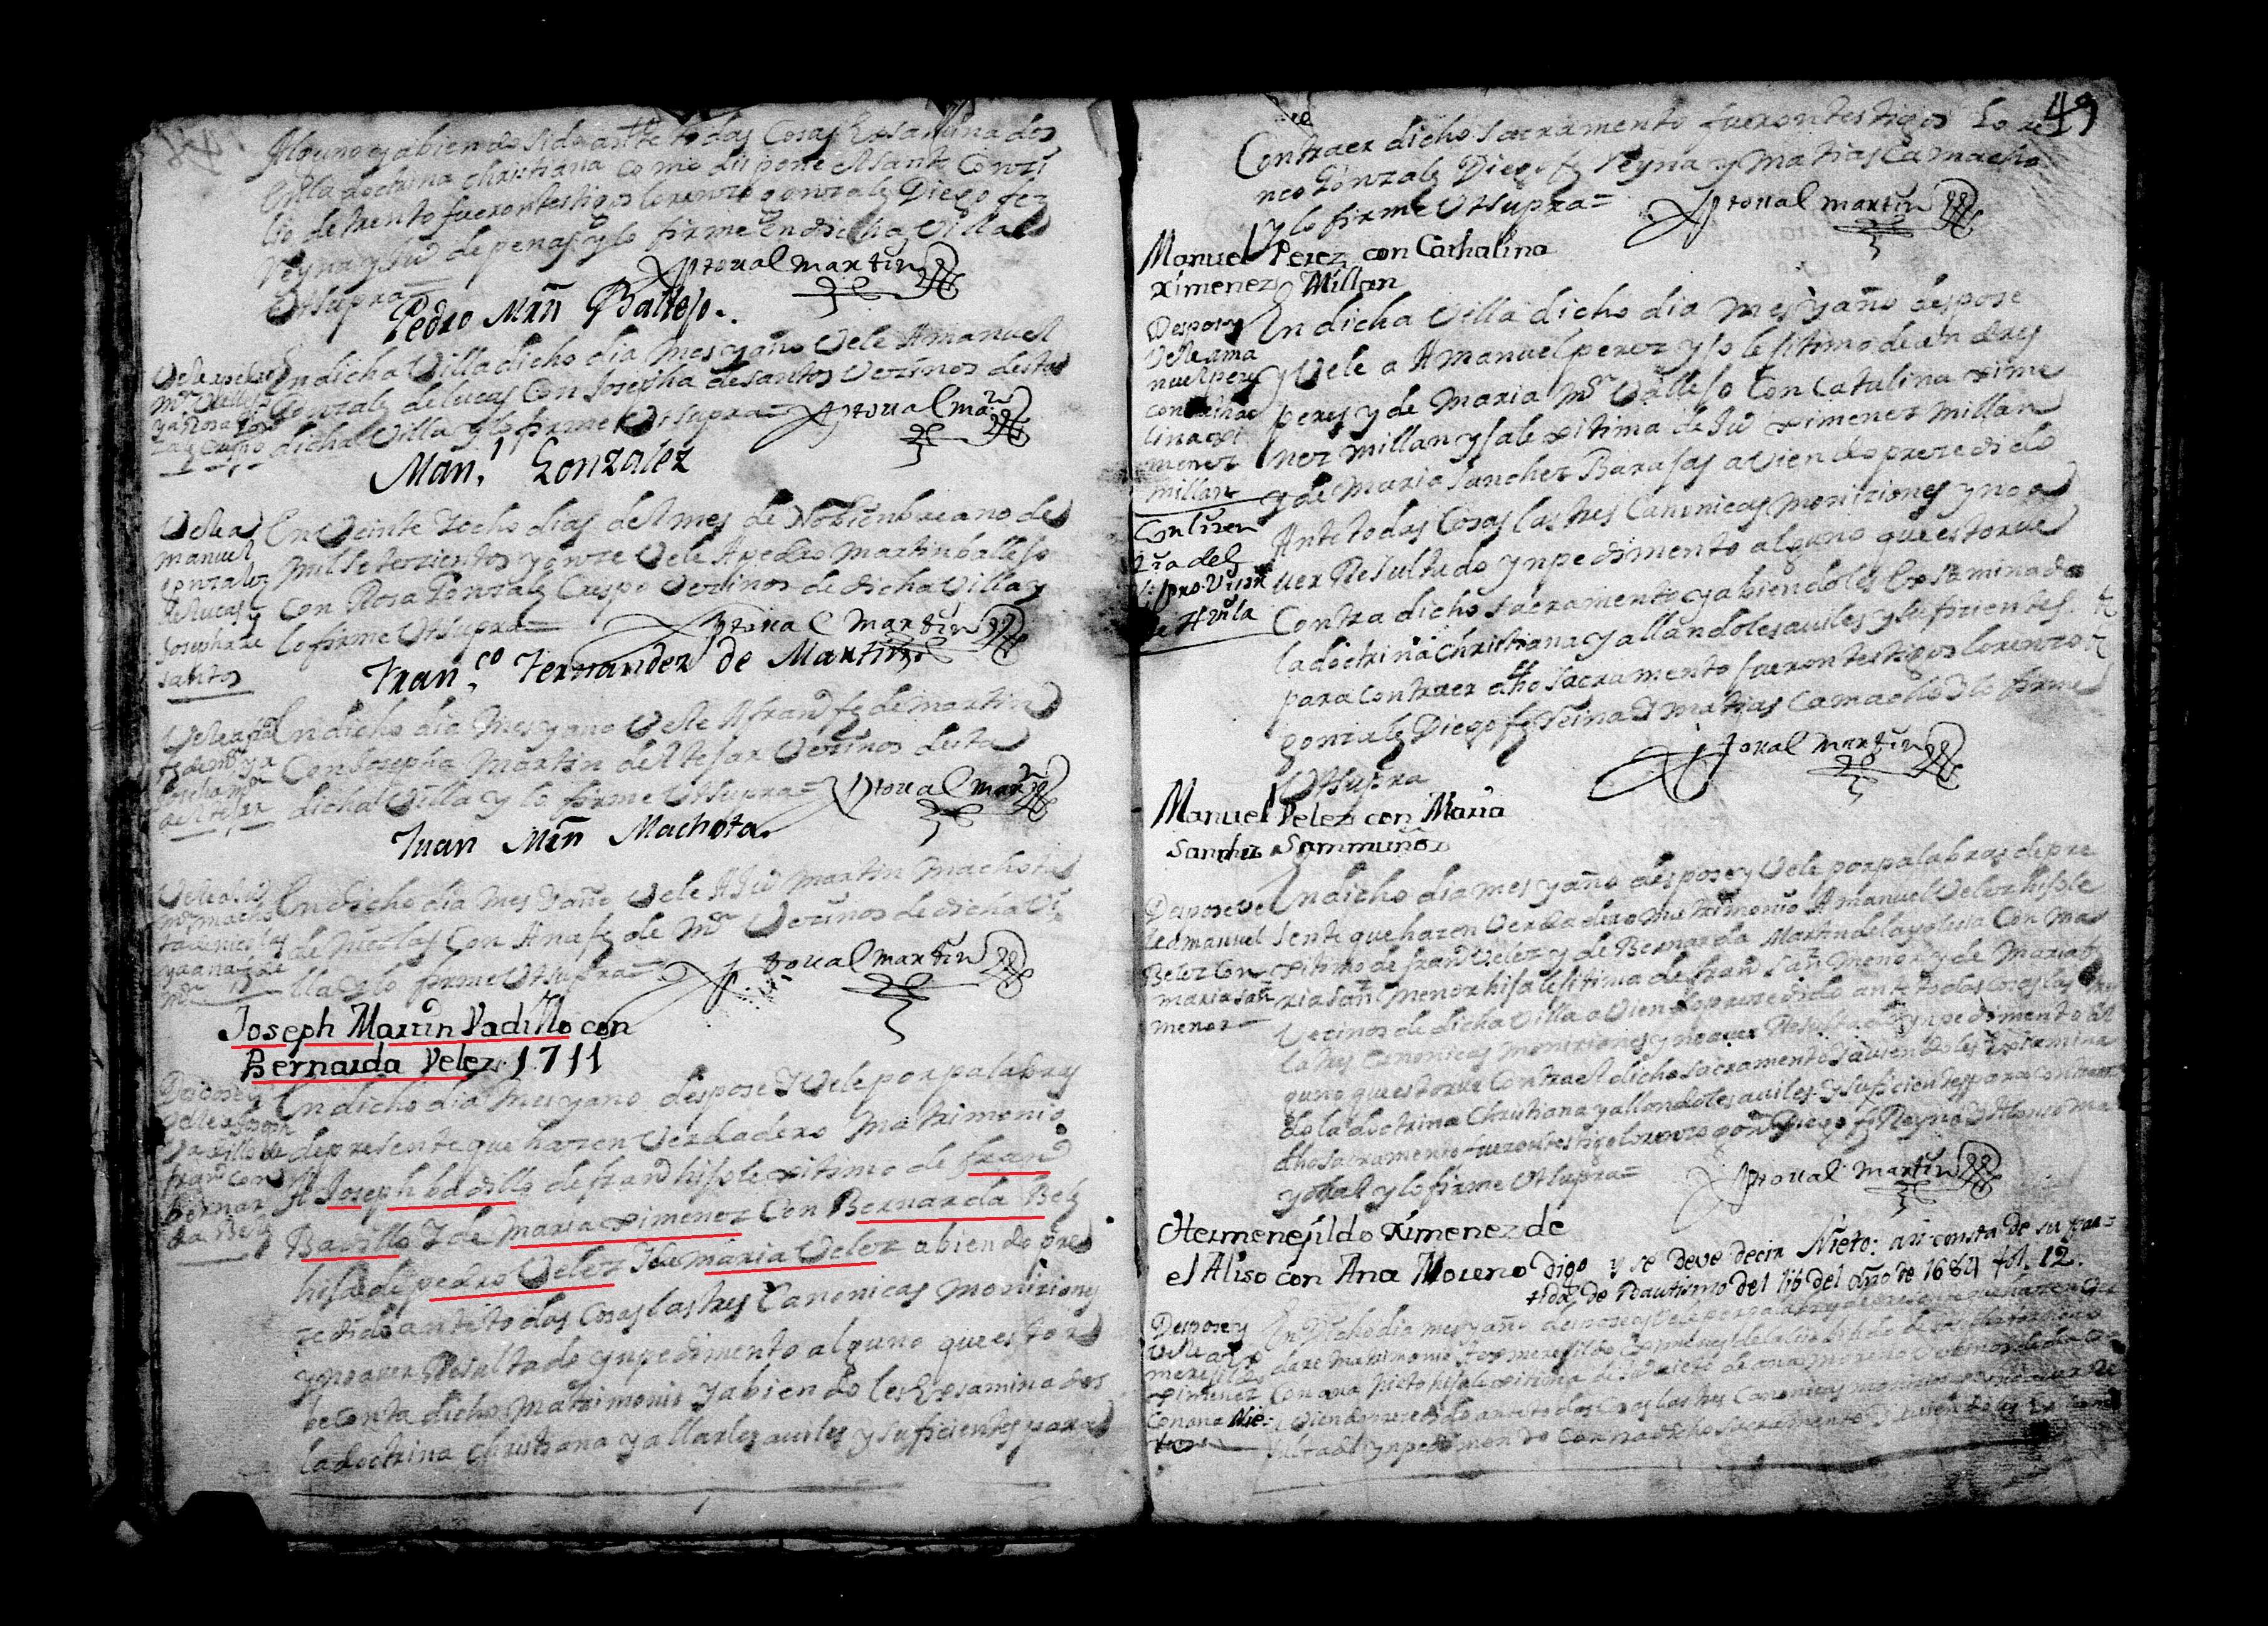 Alguno y abiendo sido ante todas cosas Exsaminados
En la doctrina christiana como dispone el santo Conzi
lio de trento fueron testigos lorenzo gonzalez Diego frz
Reyna y Juo de penas y lo firme En dicha Villa
Vt supra=
Xptoual martin
Pedro Mrñ Ballejo.
Vele a pedro
Mrn Vallejo
y a Rosa gon
zalez Crespo
En dicha Villa dicho dia mes y año Vele A manuel
Gonzalz de lucas Con Josepha de santos Vezinos desta
dicha Villa y lo firme Vt supra= Xptoual marn
Man.l Gonzalez
Vele a
manuel
gonzalez
de lucas y
Josepha de
santos
En Veinte y ocho dias del mes de Nobienbre ano de
mil setezientos y onze Vele A pedro martin ballejo
Con Rosa Gonzalz Crespo Vezinos de dicha Villa y
lo firme Vt supra= Xptoual Martin
Fran.co Fernandez de Martin.
Vele a fran
fz de mrn y a
Josepha mrn
del tejar
En dicho dia mes y ano Vele A frano fz de martin
Con Josepha Martin del tejar Vezinos desta
dicha Villa y lo firme Vt supra= Xptoual marn
Juan Mrñ Machota.
Vele a Juo
mrn macho
ta de nicolas
y a ana fz de
mrn
En dicho dia mes y año Vele A Juo martin machota
de Nicolas Con Ana fz de Mrn Vezinos de dicha Vi
lla y lo firme Vt supra=
Xptoual martin
Joseph Martin Vadillo con
Bernarda Velez. 1711
Despose y
Vele a Joseph
Vadillo de
fran con
Bernar
da Belz
En dicho dia mes y ano despose y Vele por palabras
de presente que hazen Verdadero Matrimonio
A Joseph badillo de frano hijo lexitimo de frano
Badillo y de maria ximenez Con Bernarda Belz
hija de pedro Velez y de maria Velez abiendo pre
zedido ante todas Cosas las tres Canonicas moniziones
y no aver Resultado ynpedimento alguno que estor
be Contra dicho Matrimonio y abiendoles Exsaminados
la doctrina christiana y allarles auiles y suficientes para
49
Contraer dicho sacramento fueron testigos Lore
nco Gonzalz Diego fz Reyna y Matias Camacho
y lo firme Vt supra=
Xptoual martin
Manuel Perez con Cathalina
Ximenez Millan
Despose y
Vele a ma
nuel perez
con catha
lina xi
menez
millan
Con lizen
zia del
Sr provisor
de Avila
En dicha Villa dicho dia mes y año despose
y Vele a A manuel perez yjo lejitimo de andres
peres y de maria Mrn Vallejo Con Catalina xime
nez millan yja lexitima de Juo ximenez millan
y de Maria sanchez Barajas aviendo prezedido
Ante todas Cosas las tres Canonicas moniziones y no a
ver Resultado ynpedimento alguno que estorve
Contra dicho sacramento y abiendoles Exsaminado
la doctrina christiana y allandoles auiles y suficientes
para contraer dho sacramento fueron testigos lorenzo
gonzalz Diego fz Reina y matias Camacho y lo firme
Vt supra
Xptoual martin
Manuel Velez con Maria
Sanchez Sanmuñoz
Despose y Ve
le a manuel
Belez Con
maria sanz
menor
En dicho dia mes y año despose y Vele por palabras de pre
sente que hazen Verdadero matrimonio A manuel Velez hijo le
xitimo de frano Velez y de Bernarda Martin de la yglesia Con Ma
ria sanz menor hija lejitima de frano sanz menor y de maria
Vezinos de dicha Villa aviendo prezedido ante todas cosas las
tres Canonicas moniziones y no aver Resultado ynpedimento al
guno que estorve Contra el dicho sacramento y aviendoles Exsamina
do la doctrina christiana y allandoles auiles y suficientes para contraer
dho sacramento fueron testigos lorenzo gonz Diego fz Reyna y Alonso ma
y lo firme Vt supra=
Xptoual martin
Hermenejildo Ximenez de
el Aliso con Ana Moreno Digo y se deve decir Nieto: asi consta de su par=
tida de Bautismo del lib del año de 1684 fol. 12.
Despose y
Vele a
menejildo
ximenez
Con ana Nie=
to
En Dicho dia mes y año despose y Vele por palabras de presente que hazen Ver
dadero matrimonio
Con ana Nieto hija lexitima de Juo nieto de ana moreno Vezinos de dicha
aviendo prezedido ante todas Cosas las tres Canonicas moniziones y no aver Re
sultado ynpedimento Contra dicho sacramento y aviendoles